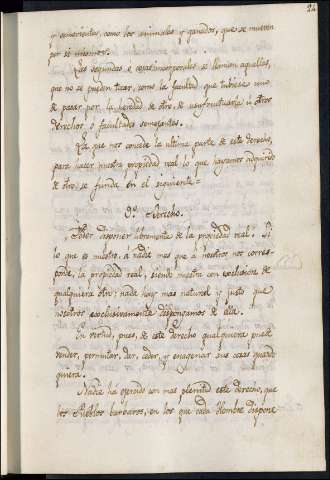 24
y semovientes, como los animales y ganados, que se mueven
por sí mismos.
Las segundas ó cosas incorporales se llaman aquellas,
que no se pueden tocar, como la facultad que tubiese uno
de pasar por la heredad de otro, de usufructuarla ú otros
derechos, ó facultades semejantes.
La que nos concede la ultima parte de este derecho,
para hacer nuestra propiedad real lo que hayamos adquirido
de otro, se funda en el siguiente =
3.º Derecho.
Poder disponer libremente de la propiedad real. Si
lo que es nuestro, á nadie mas que á nosotros nos corres-
ponde, la propiedad real, siendo nuestra con exclusión de
qualquiera otro; nada hay mas natural y justo que
nosotros exclusivamente dispongamos de ella.
En virtud, pues, de este derecho qualquiera puede
vender, permutar, dar, ceder, y enagenar sus cosas quando
quiera.
Nadie ha ejercido con mas plenitud este derecho, que
los Pueblos barbaros, en los que cada Hombre dispone